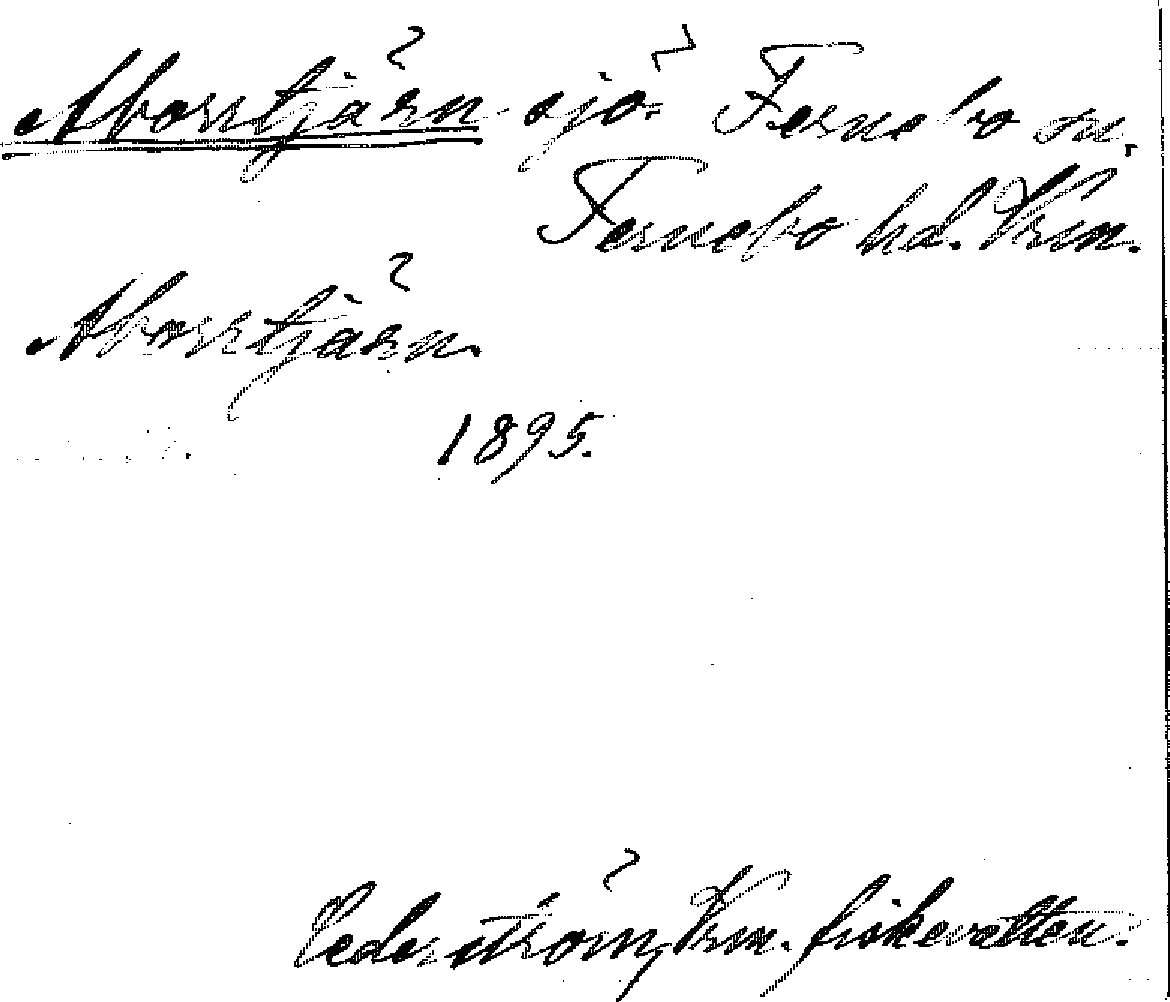 Aborrtjärn sjö Fernebo sn.
Fernebo hd. Vrm.
Aborrtjärn.
1895.
Cederström, Vrm. fiskevatten.